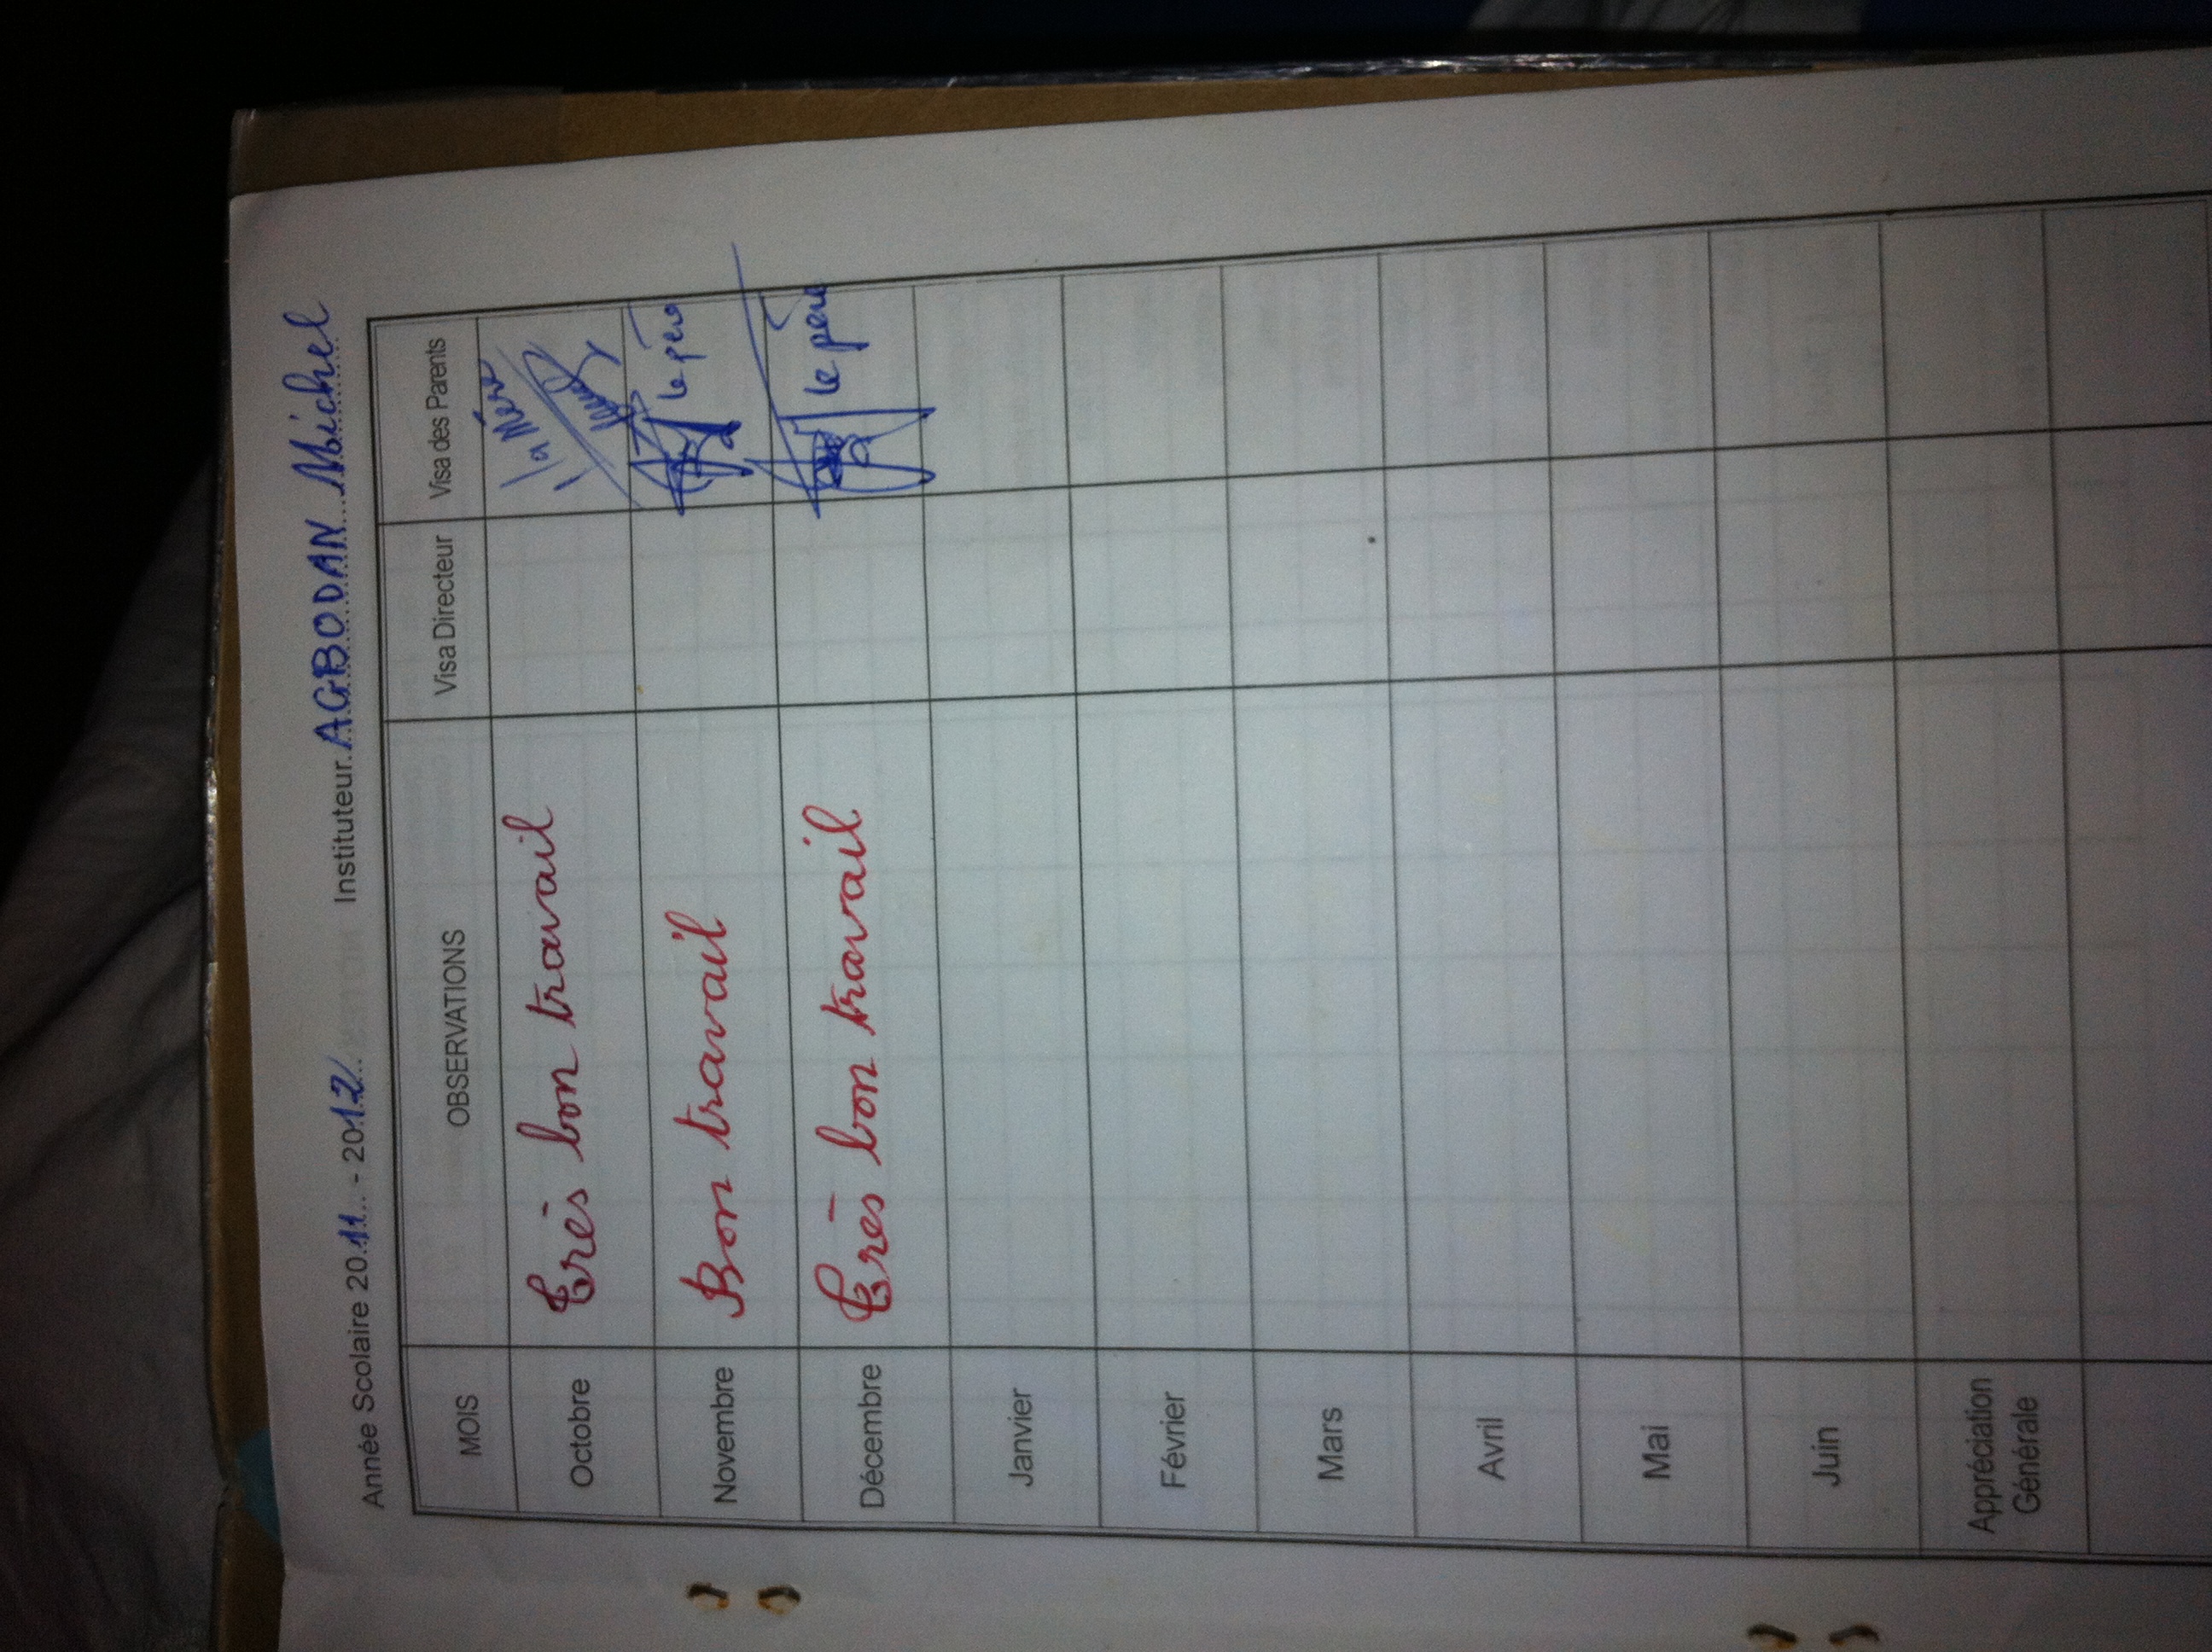 Année Scolaire 2011 - 2012 Instituteur AGBODAN Michel
MOIS OBSERVATIONS Visa Directeur Visa des Parents
Octobre Très bon travail la Mère
Novembre Bon travail le père
Décembre Très bon travail le père
Janvier
Février
Mars
Avril
Mai
Juin
Appréciation
Générale